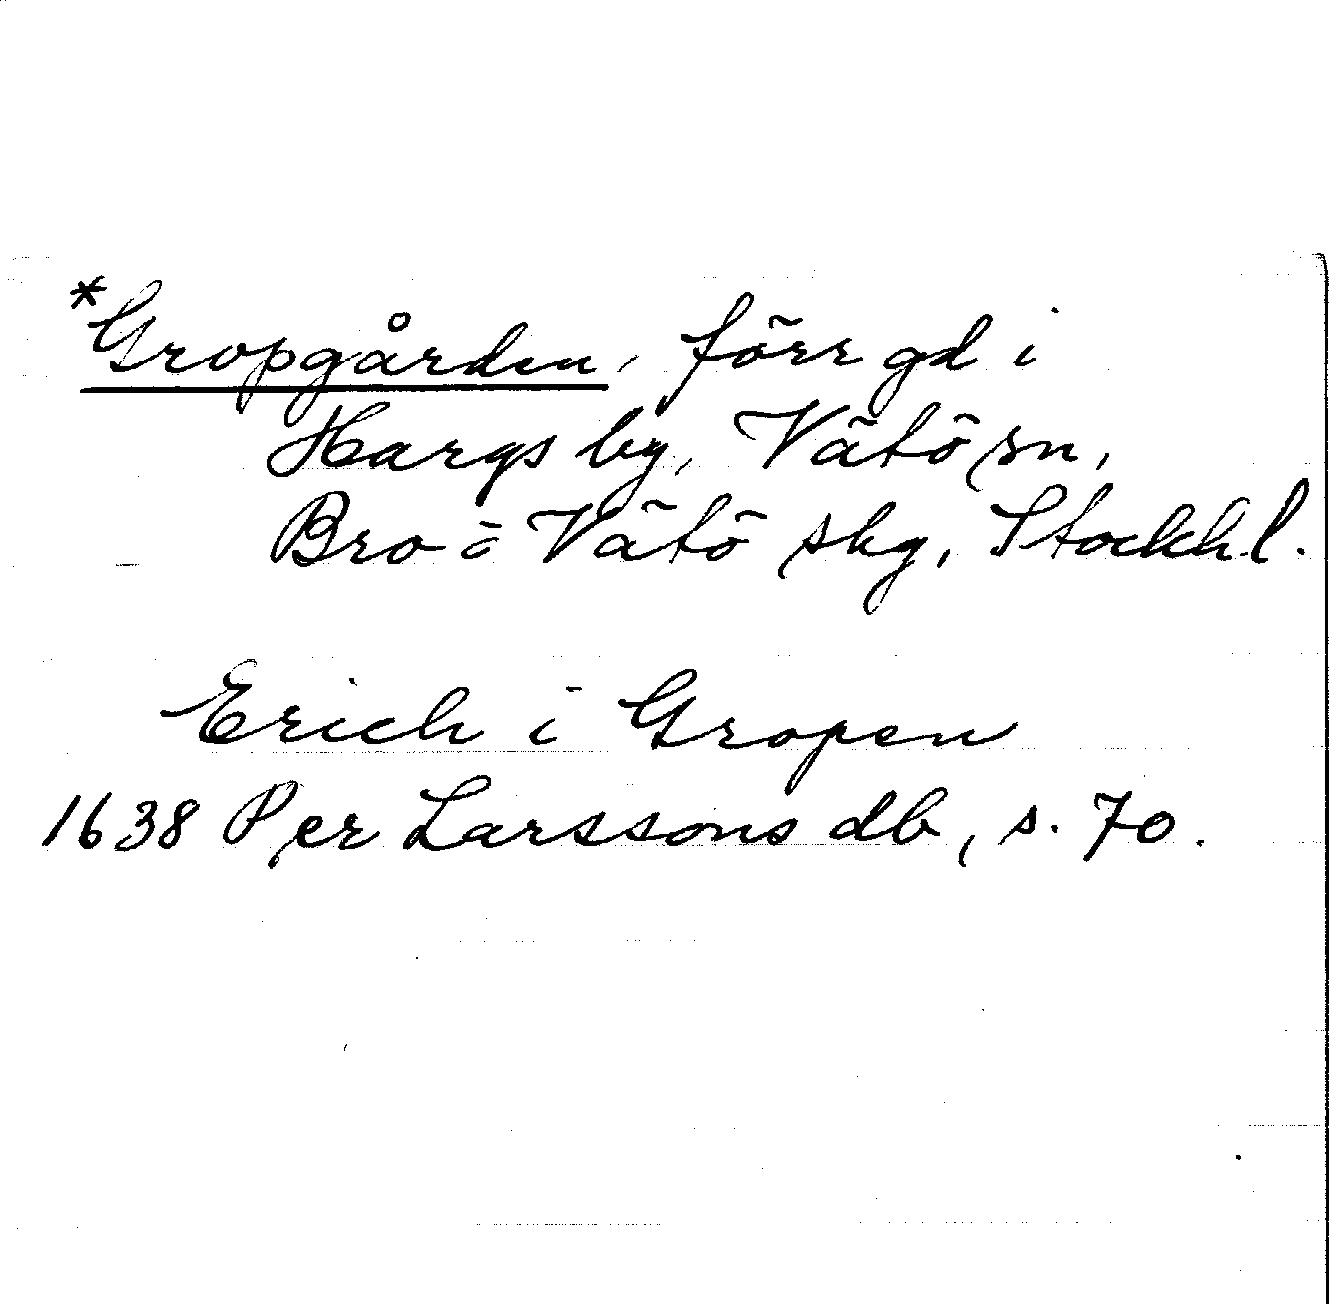 *Gropgården, förr gd i
Hargs by, Vätö sn,
Bro o Vätö skg, Stockh. l.
Erich i Gropen
1638 Per Larssons db, s. 70.